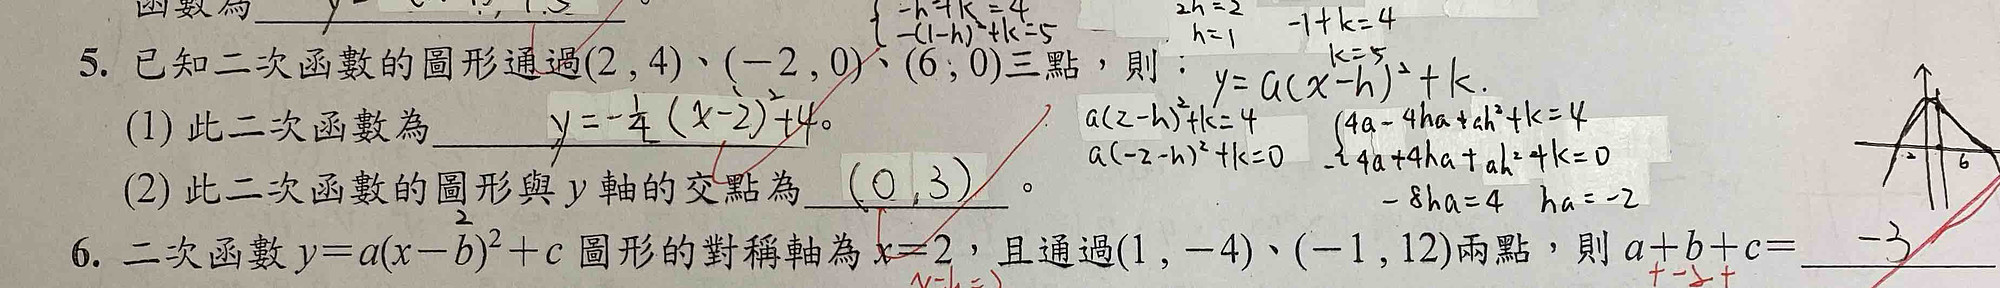 函數為
-h²+k=4
-(1-h)²+k=5
2h=2
h=1
-1+k=4
k=5
5. 已知二次函數的圖形通過(2 , 4)、(-2 , 0)、(6 , 0)三點，則：
y=a(x-h)²+k.
(1) 此二次函數為 y=-1/4 (x-2)²+4。
a(2-h)²+k=4
a(-2-h)²+k=0
4a-4ha+ah²+k=4
4a+4ha+ah²+k=0
-8ha=4 ha=-2
-2 6
(2) 此二次函數的圖形與 y 軸的交點為 (0,3) 。
2
6. 二次函數 y=a(x-b)²+c 圖形的對稱軸為 x=2，且通過(1 , -4)、(-1 , 12)兩點，則 a+b+c= -3